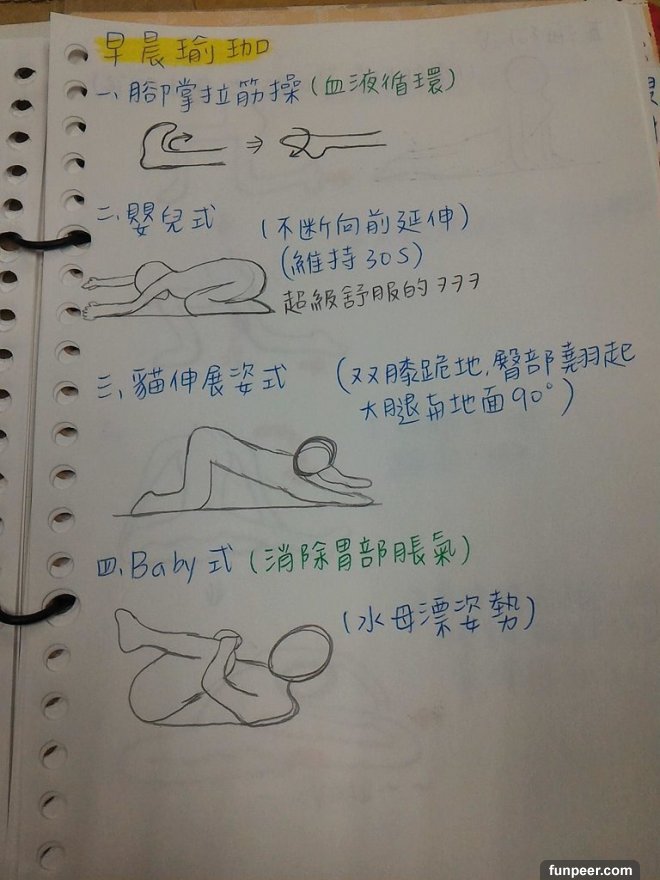 早晨瑜珈
一、腳掌拉筋操(血液循環)
二、嬰兒式 (不斷向前延伸)
(維持30S)
超級舒服的ㄋㄋㄋ
三、貓伸展姿式 (双膝跪地,臀部翹起
大腿與地面90°)
四、Baby式(消除胃部脹氣)
(水母漂姿勢)
funpeer.com